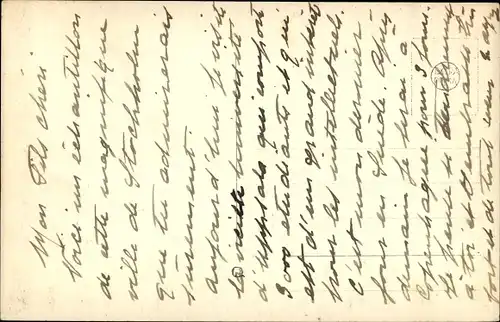 Mon Fils chéri
Voici un échantillon
de cette magnifique
ville de Stockholm
que tu admirerais
sûrement.
Aujourd'hui je visite
la vieille université
d'Uppsala qui comporte
3000 etudiants et qui
est d'un grand intérêt
pour les intellectuels.
C'est mon dernier
jour en Suède. Après
demain je serai à
Copenhague pour 3 jours.
Je pense
à toi et t'embrasse bien
fort de tout